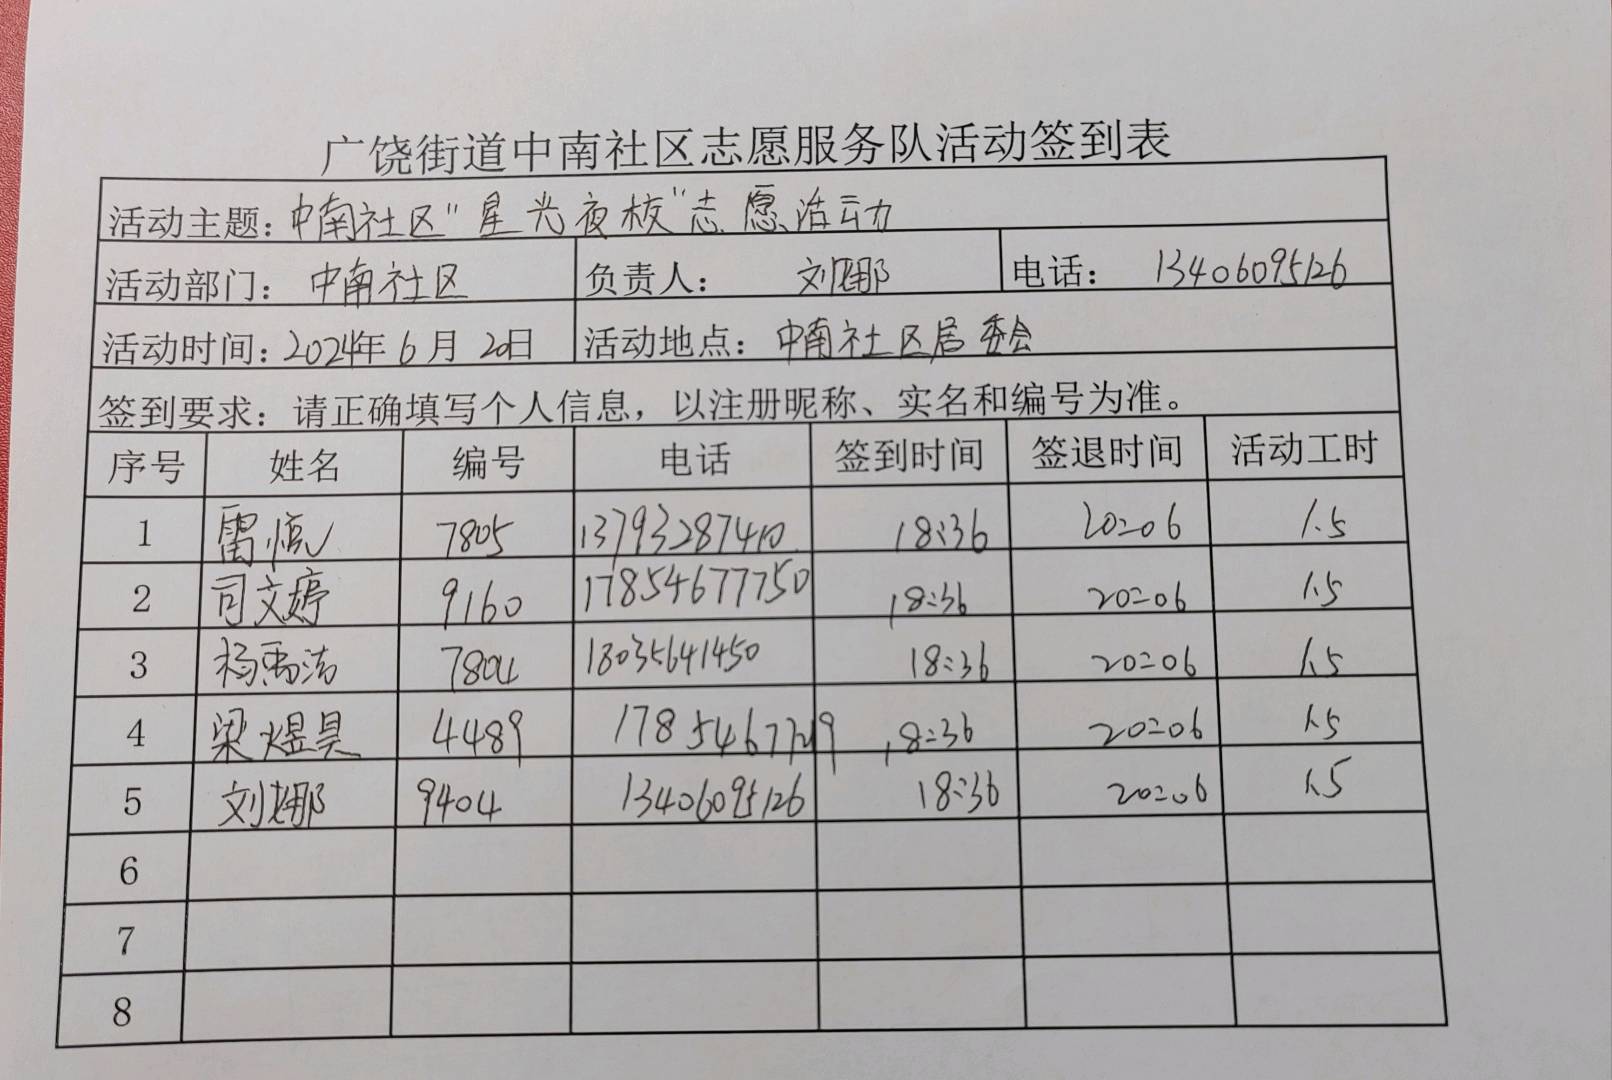 广饶街道中南社区志愿服务队活动签到表
活动主题：中南社区“星光夜校”志愿活动
活动部门：中南社区 负责人：刘娜 电话：13406095126
活动时间：2024年6月20日 活动地点：中南社区居委会
签到要求：请正确填写个人信息，以注册昵称、实名和编号为准。
序号 姓名 编号 电话 签到时间 签退时间 活动工时
1 雷 7805 13793287410 18:36 20:06 1.5
2 司文婷 9160 17854677750 18:36 20:06 1.5
3 杨禹洁 7804 18035641450 18:36 20:06 1.5
4 梁煜昊 4489 18:36 20:06 1.5
5 刘娜 9404 13406095126 18:36 20:06 1.5
6
7
8